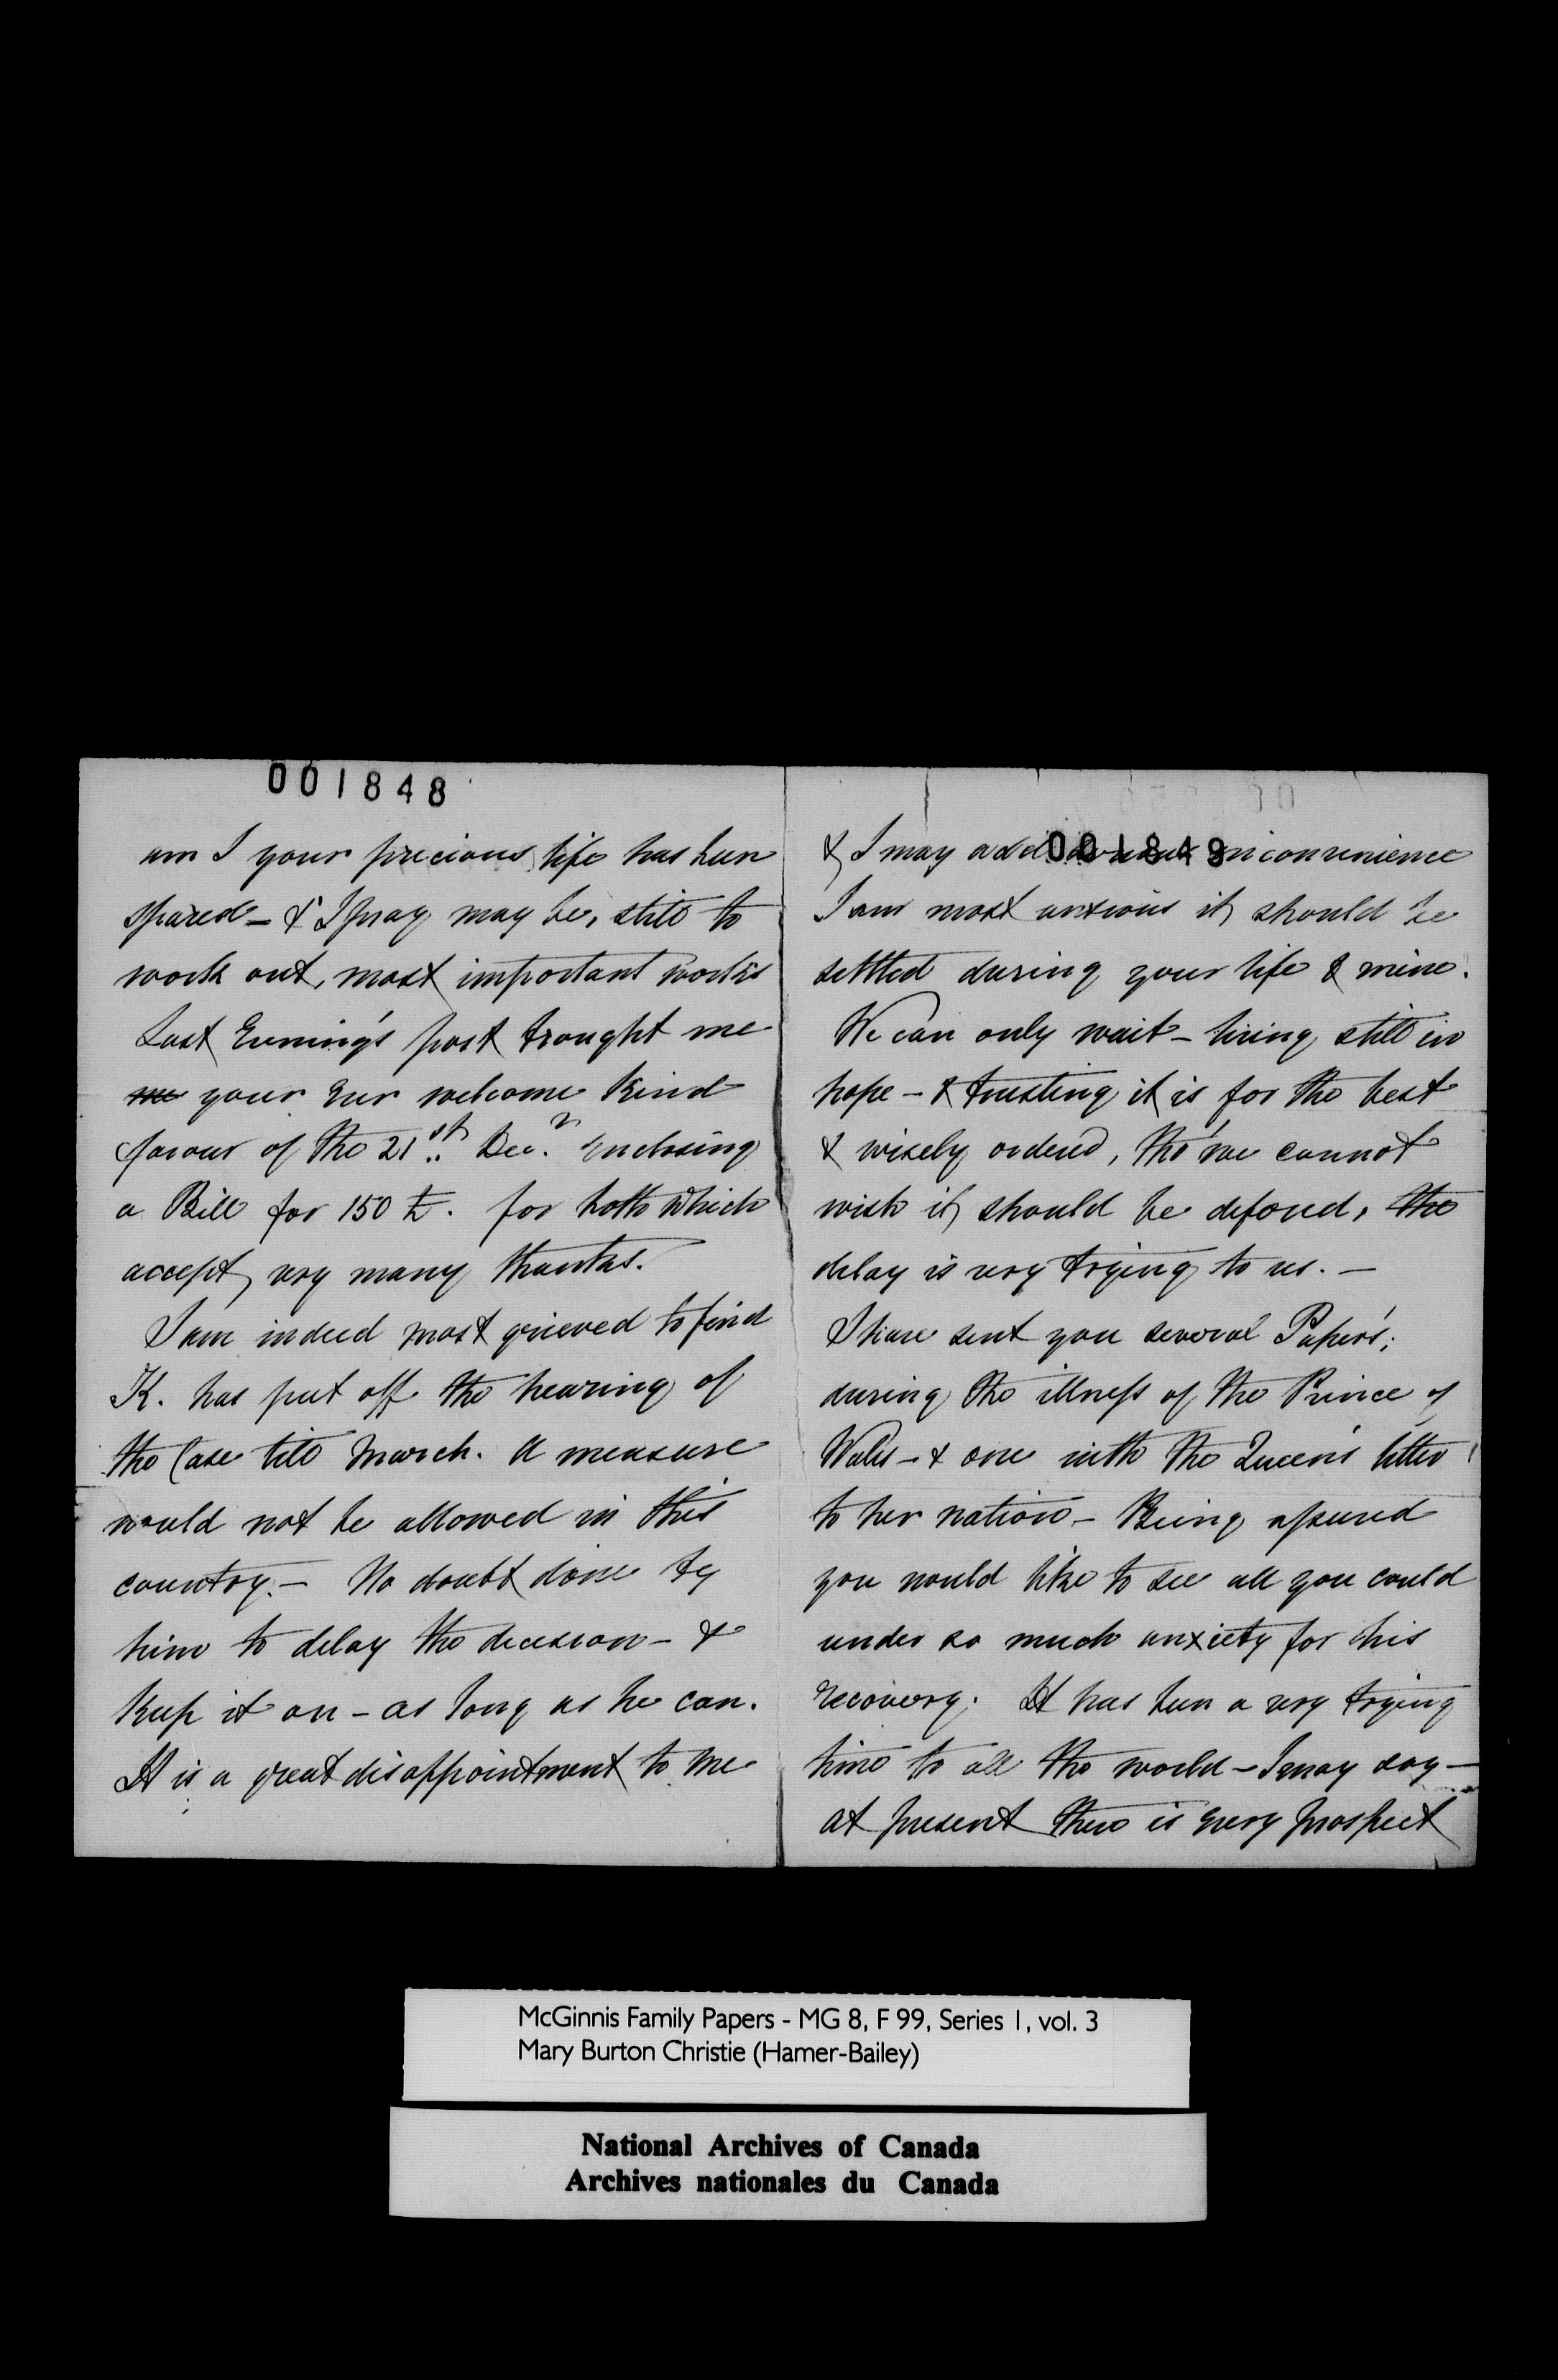 001848
am I your precious life has been
spared - & I pray may be, still to
work out, most important works
Last Evening's post brought me
me your ever welcome kind
favour of the 21st. Decr. enclosing
a Bill for 150 £. for both which
accept very many thanks.
I am indeed most grieved to find
K. has put off the hearing of
the Case till March. A measure
would not be allowed in this
country. - No doubt done by
him to delay the decision - &
keep it on - as long as he can.
It is a great disappointment to me
& I may add inconvenience
001849
I am most anxious it should be
settled during your life & mine.
We can only wait - living still in
hope - & trusting it is for the best
& wisely ordered, tho' we cannot
wish it should be defered, the
delay is very trying to us. -
I have sent you several Paper's;
during the illness of the Prince of
Wales - & one with the Queen's letter
to her nation - Being assured
you would like to see all you could
under so much anxiety for his
recovery. It has been a very trying
time to all the world - I may say -
at present there is every prospect
McGinnis Family Papers - MG 8, F 99, Series 1, vol. 3
Mary Burton Christie (Hamer-Bailey)
National Archives of Canada
Archives nationales du Canada